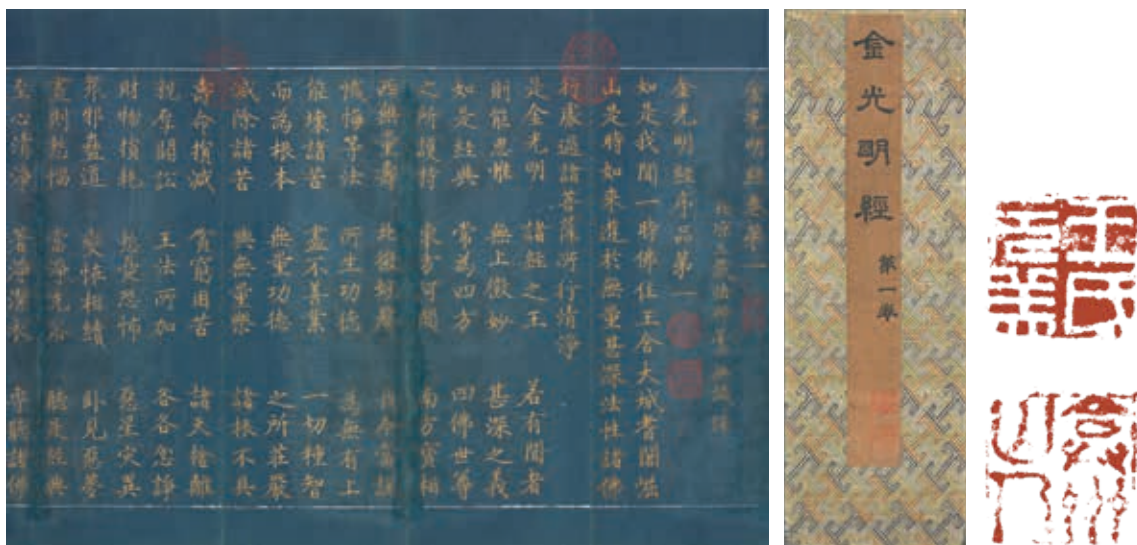 金光明經卷第一
北涼三藏法師曇無讖譯
金光明經序品第一
如是我聞一時佛住王舍大城耆闍崛
山是時如來遊於無量甚深法性諸佛
行處過諸菩薩所行清淨
是金光明 諸經之王 若有聞者
則能思惟 無上微妙 甚深之義
如是經典 常為四方 四佛世尊
之所護持 東方阿閦 南方寶相
西無量壽 北微妙聲 我今當說
懺悔等法 所生功德 為無有上
能壞諸苦 盡不善業 一切種智
而為根本 無量功德 之所莊嚴
滅除諸苦 與無量樂 諸根不具
壽命損減 貧窮困苦 諸天捨離
親厚鬪訟 王法所加 各各忿諍
財物損耗 愁憂恐怖 惡星災異
眾邪蠱道 變怪相續 臥見惡夢
晝則愁惱 當淨洗浴 聽是經典
至心清淨 著淨潔衣 專聽諸佛
金光明經
第一卷